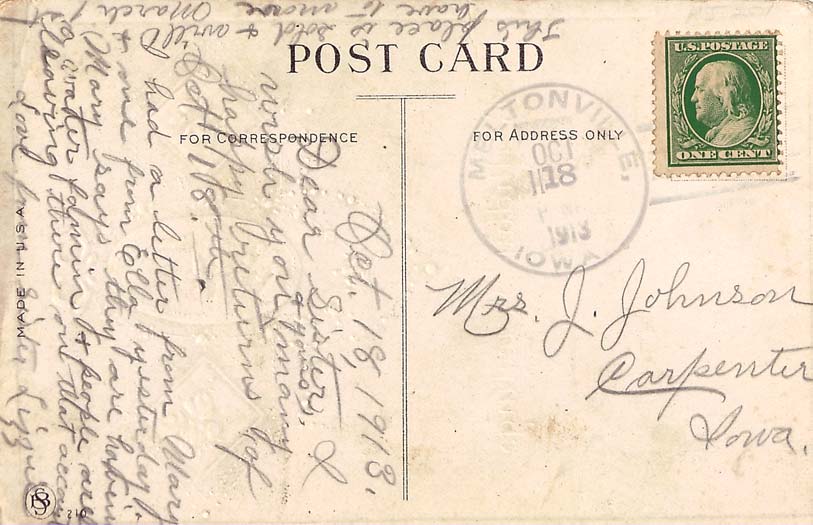 POST CARD
FOR CORRESPONDENCE
FOR ADDRESS ONLY
U.S. POSTAGE
ONE CENT
MELTONVILLE,
OCT
18
1913
IOWA
Mrs. J. Johnson
Carpenter
Iowa.
Oct. 18, 1913.
Dear Sister, I
wish you & yours many
happy returns of
Oct 18th.
I had a letter from Mary
& one from Ella yesterday.
Mary says they are having
a water famin & people are
leaving there on that
Love from Sister Lizzie
This place is sold &
have to move
March 1
MADE IN U.S.A.
210